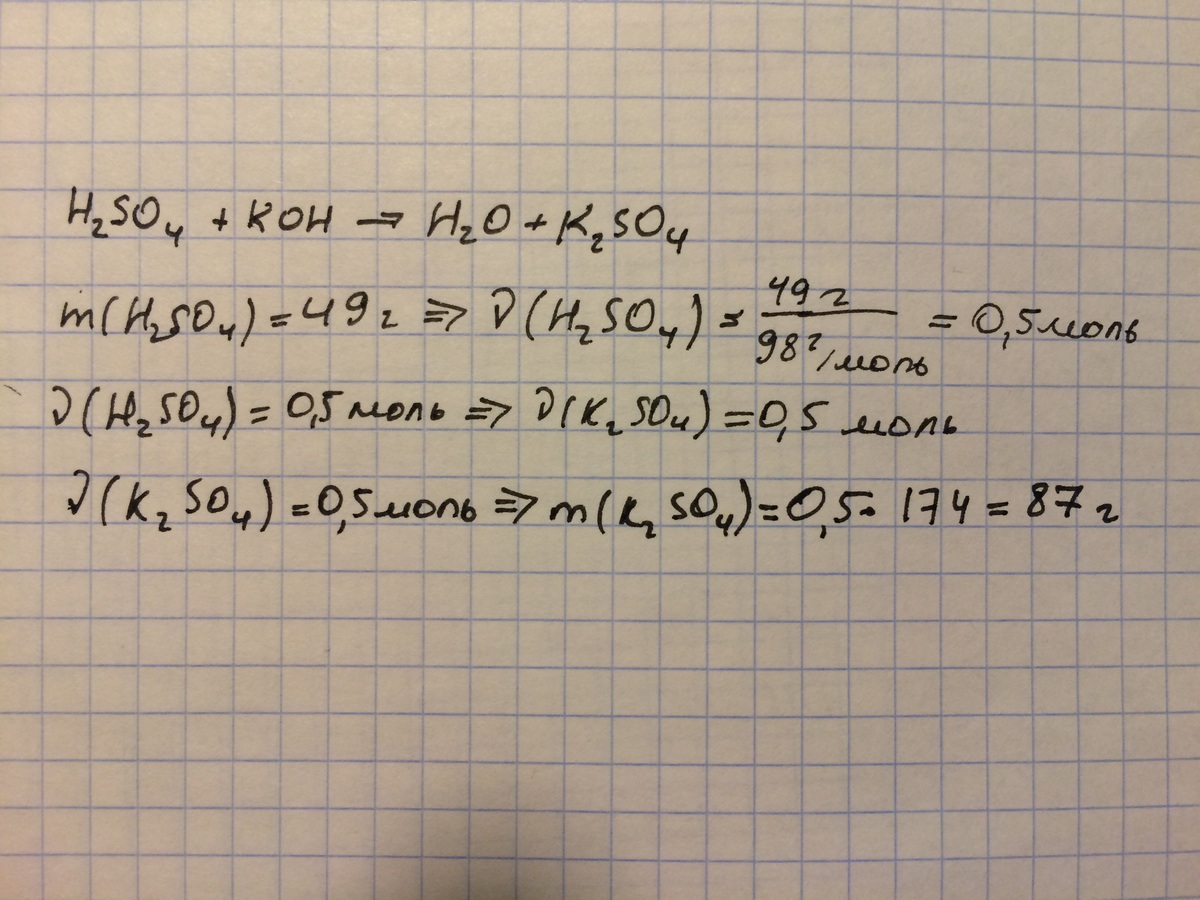 H₂SO₄ + KOH → H₂O + K₂SO₄
m(H₂SO₄) = 49 г ⇒ ν(H₂SO₄) = 49 г / 98 г/моль = 0,5 моль
ν(H₂SO₄) = 0,5 моль ⇒ ν(K₂SO₄) = 0,5 моль
ν(K₂SO₄) = 0,5 моль ⇒ m(K₂SO₄) = 0,5 · 174 = 87 г